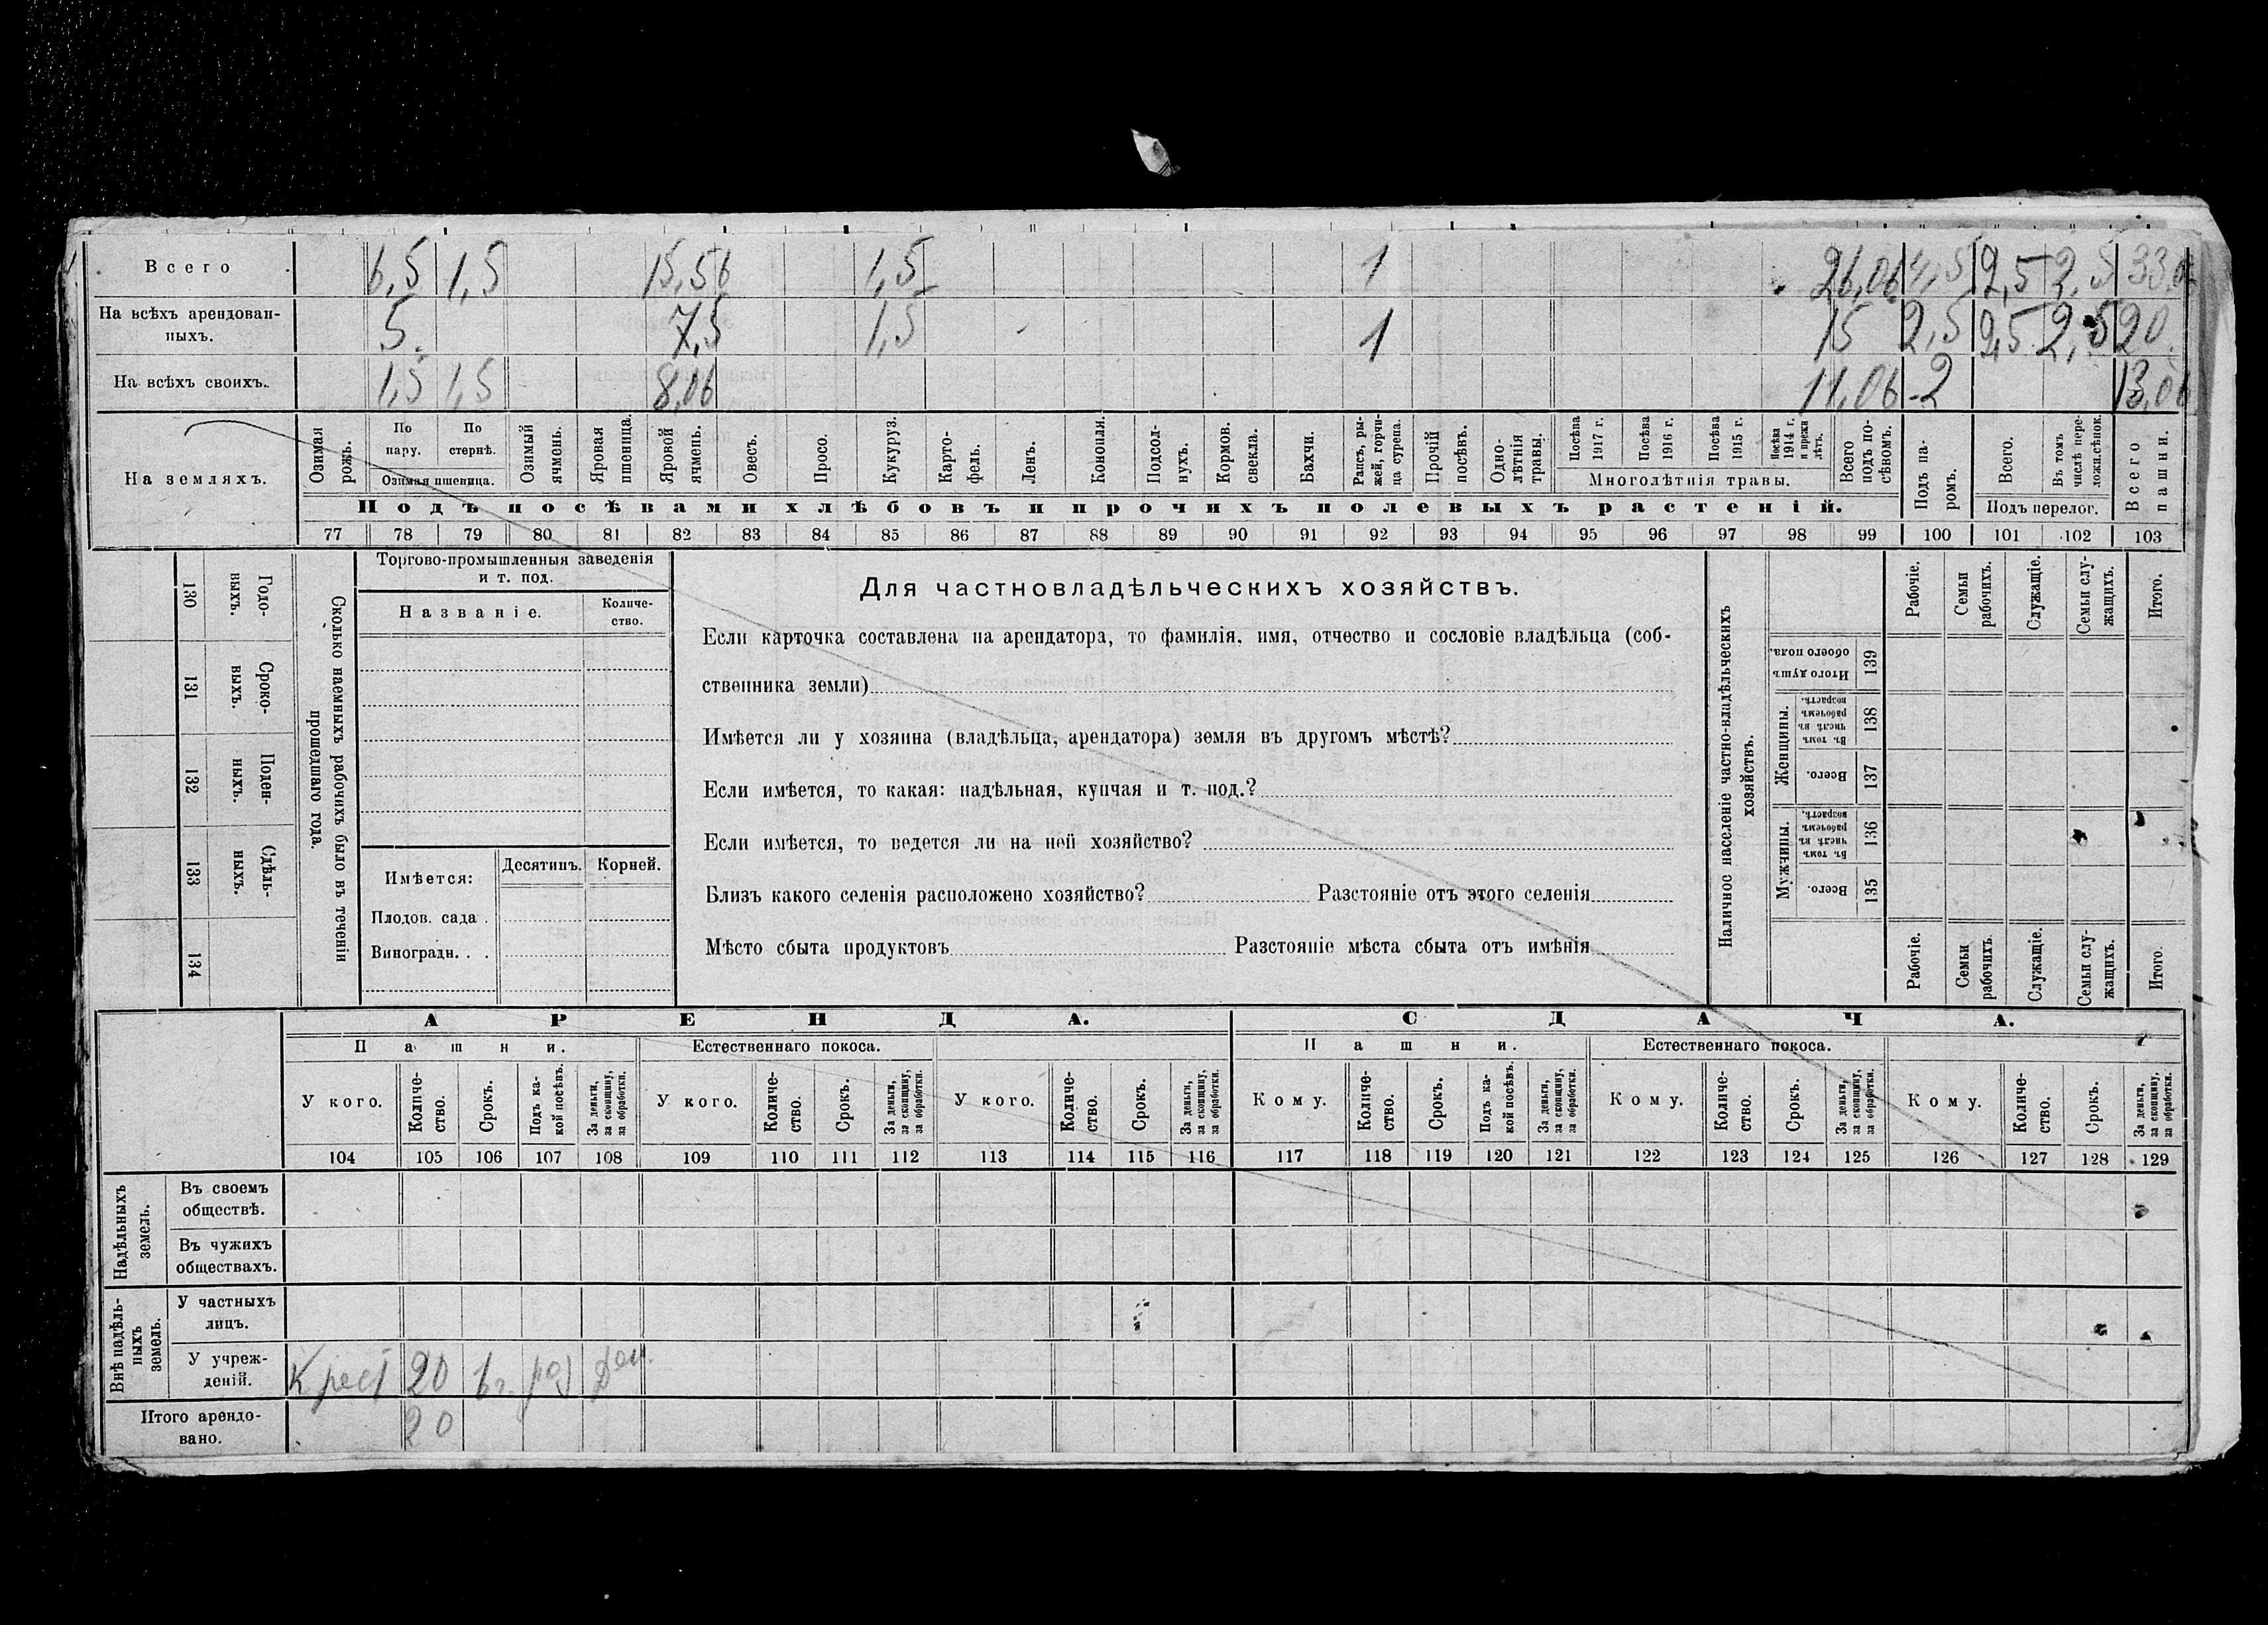 Всего 6,5 1,5 15,56 1,5 1 26,06 4,5 2,5 2,5 33,06
На всѣхъ арендован-
ныхъ. 5 7,5 1,5 1 15 2,5 2,5 2,5 20
На всѣхъ своихъ. 1,5 1,5 8,06 11,06 2 13,06
На земляхъ.
Озимая рожь.
По пару.
По стернѣ.
Озимая пшеница.
Озимый ячмень.
Яровая пшеница.
Яровой ячмень.
Овесъ.
Просо.
Кукуруз.
Карто-
фель.
Ленъ.
Конопля.
Подсол-
нухъ.
Кормов.
свекла.
Бахчи.
Рапсъ, ры-
жей, горчи-
ца сурепа.
Прочій
посѣвъ.
Одно-
лѣтнія
травы.
Посѣва
1917 г.
Посѣва
1916 г.
Посѣва
1915 г.
Посѣва
1914 г.
и прежн
лѣтъ.
Многолѣтнія травы.
Всего
подъ по-
сѣвомъ.
Подъ па-
ромъ.
Всего.
Въ томъ
числѣ пере-
ложн.сѣнок.
Подъ перелог.
Всего
пашни.
Подъ посѣвами хлѣбовъ и прочихъ полевыхъ растеній.
77 78 79 80 81 82 83 84 85 86 87 88 89 90 91 92 93 94 95 96 97 98 99 100 101 102 103
130 Годо-
выхъ.
131 Сроко-
выхъ.
132 Поден-
ныхъ.
133 Сдѣль-
ныхъ.
134
Сколько наемныхъ рабочихъ было въ теченіи
прошедшаго года.
Торгово-промышленныя заведенія
и т. под.
Названіе.
Количе-
ство.
Имѣется: Десятинъ. Корней.
Плодов. сада .
Виноградн. . .
Для частновладѣльческихъ хозяйствъ.
Если карточка составлена на арендатора, то фамилія, имя, отчество и сословіе владѣльца (соб-
ственника земли)
Имѣется ли у хозяина (владѣльца, арендатора) земля въ другомъ мѣстѣ?
Если имѣется, то какая: надѣльная, купчая и т. под.?
Если имѣется, то ведется ли на ней хозяйство?
Близъ какого селенія расположено хозяйство? Разстояніе отъ этого селенія
Мѣсто сбыта продуктовъ Разстояніе мѣста сбыта отъ имѣнія
Наличное населеніе частно-владѣльческихъ
хозяйствъ.
Рабочіе.
Семьи
рабочихъ.
Служащіе.
Семьи слу-
жащихъ.
Итого.
Итого душъ
обоего пола.
139
Женщины.
Въ томъ
числѣ въ
рабочемъ
возрастѣ.
138
Всего.
137
Мужчины.
Въ томъ
числѣ въ
рабочемъ
возрастѣ.
136
Всего.
135
Рабочіе.
Семьи
рабочихъ.
Служащіе.
Семьи слу-
жащихъ.
Итого.
АРЕНДА. СДАЧА.
Пашни. Естественнаго покоса. Пашни. Естественнаго покоса.
У кого.
Количе-
ство.
Срокъ.
Подъ ка-
кой посѣвъ.
За деньги,
за скопщину,
за обработки.
У кого.
Количе-
ство.
Срокъ.
За деньги,
за скопщину,
за обработки.
У кого.
Количе-
ство.
Срокъ.
За деньги,
за скопщину,
за обработки.
Кому.
Количе-
ство.
Срокъ.
Подъ ка-
кой посѣвъ.
За деньги,
за скопщину,
за обработки.
Кому.
Количе-
ство.
Срокъ.
За деньги,
за скопщину,
за обработки.
Кому.
Количе-
ство.
Срокъ.
За деньги,
за скопщину,
за обработки.
104 105 106 107 108 109 110 111 112 113 114 115 116 117 118 119 120 121 122 123 124 125 126 127 128 129
Надѣльныхъ
земель.
Въ своемъ
обществѣ.
Въ чужихъ
обществахъ.
Внѣ надѣль-
ныхъ
земель.
У частныхъ
лицъ.
У учреж-
деній. Крест 20 1 г. раз Ден.
Итого арендо-
вано. 20